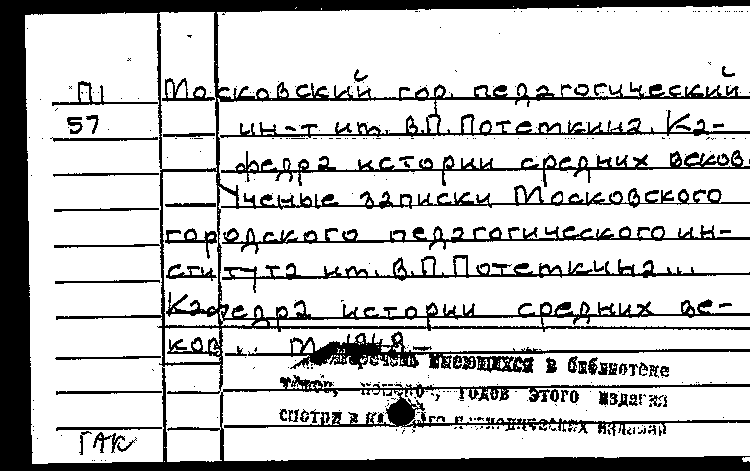 П1 Московский гор. педагогический
57 ин-т им. В.П. Потемкина. Ка-
федра истории средних веков.
Ученые записки Московского
городского педагогического ин-
ститута им. В.П. Потемкина...
Кафедра истории средних ве-
ков... М. 1948-
Перечень имеющихся в библиотеке
томов, годов этого издания
смотри в периодических изданий
ГАК